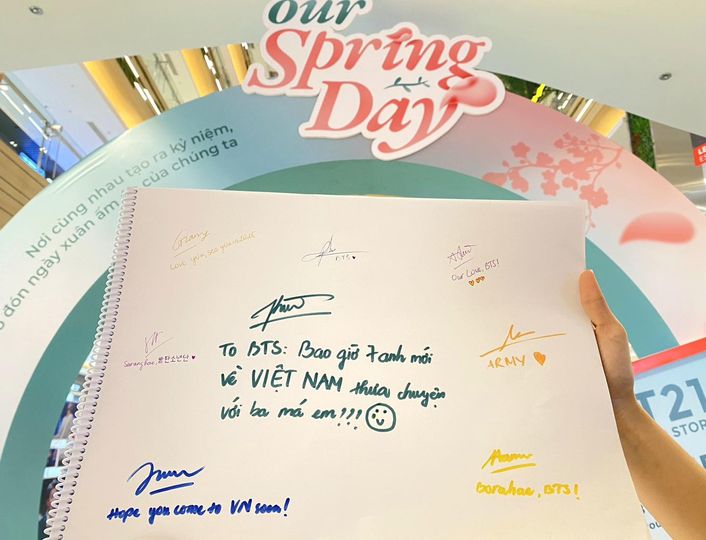 our
Spring
Day
Nơi cùng nhau tạo ra kỷ niệm,
đón ngày xuân ấm của chúng ta
Love you, see you
BTS
Our Love, BTS!
Saranghae, #탄소년단
ARMY
To BTS: Bao giờ 7 anh mới
về VIỆT NAM thưa chuyện
với ba má em!!!
Hope you come to VN soon!
Borahae, BTS!
T21
STOR